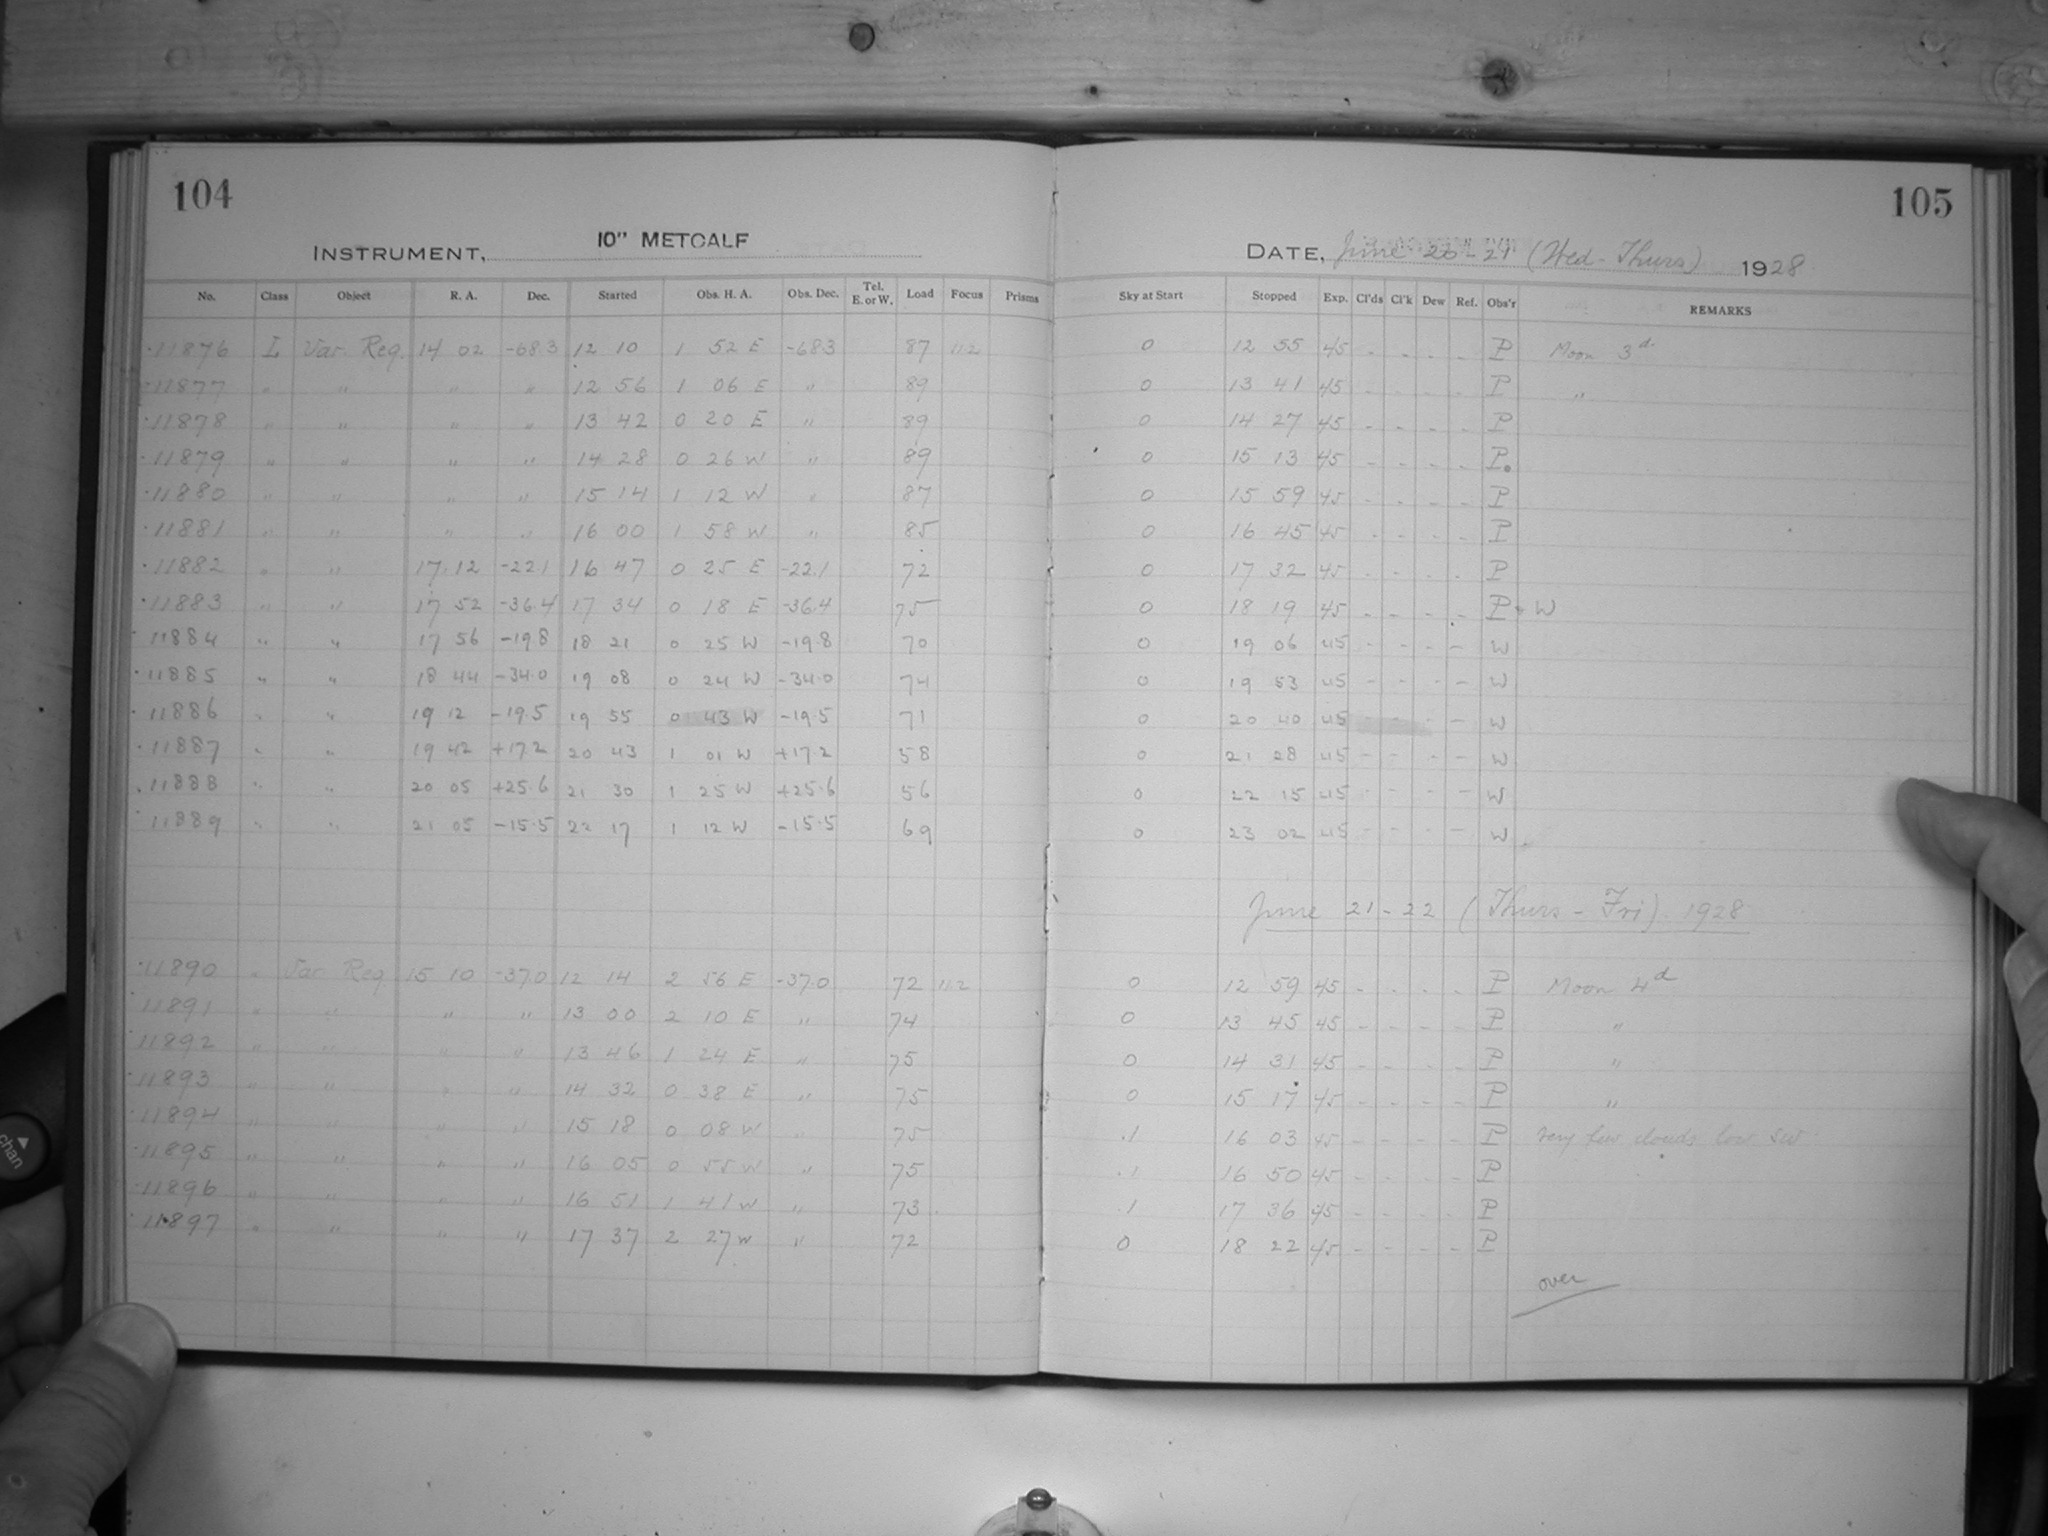 104
105
INSTRUMENT, 10" METCALF
DATE, June 20-21 (Wed-Thurs) 1928
No. Class Object R. A. Dec. Started Obs. H. A. Obs. Dec. Tel. E. or W. Load Focus Prisms Sky at Start Stopped Exp. Cl'ds Cl'k Dew Ref. Obs'r REMARKS
11876 I Var. Reg. 14 02 -68.3 12 10 1 52 E -683 87 11.2 0 12 55 45 - - - - P Moon 3d.
11877 " " " " 12 56 1 06 E " 89 0 13 41 45 - - - - P "
11878 " " " " 13 42 0 20 E " 89 0 14 27 45 - - - - P
11879 " " " " 14 28 0 26 W " 89 0 15 13 45 - - - - P.
11880 " " " " 15 14 1 12 W " 87 0 15 59 45 - - - - P
11881 " " " " 16 00 1 58 W " 85 0 16 45 45 - - - - P
11882 " " 17 12 -22.1 16 47 0 25 E -22.1 72 0 17 32 45 - - - - P
11883 " " 17 52 -36.4 17 34 0 18 E -36.4 75 0 18 19 45 - - - - P + W
11884 " " 17 56 -19.8 18 21 0 25 W -19.8 70 0 19 06 45 - - - - W
11885 " " 18 44 -34.0 19 08 0 24 W -34.0 74 0 19 53 45 - - - - W
11886 " " 19 12 -19.5 19 55 0 43 W -19.5 71 0 20 40 45 - - - - W
11887 " " 19 42 +17.2 20 43 1 01 W +17.2 58 0 21 28 45 - - - - W
11888 " " 20 05 +25.6 21 30 1 25 W +25.6 56 0 22 15 45 - - - - W
11889 " " 21 05 -15.5 22 17 1 12 W -15.5 69 0 23 02 45 - - - - W
June 21-22 (Thurs-Fri) 1928
11890 " Var. Reg 15 10 -37.0 12 14 2 56 E -37.0 72 11.2 0 12 59 45 - - - - P Moon 4d
11891 " " " " 13 00 2 10 E " 74 0 13 45 45 - - - - P "
11892 " " " " 13 46 1 24 E " 75 0 14 31 45 - - - - P "
11893 " " " " 14 32 0 38 E " 75 0 15 17 45 - - - - P "
11894 " " " " 15 18 0 08 W " 75 .1 16 03 45 - - - - P Very few clouds low SW
11895 " " " " 16 05 0 55 W " 75 .1 16 50 45 - - - - P
11896 " " " " 16 51 1 41 W " 73 .1 17 36 45 - - - - P
11897 " " " " 17 37 2 27 W " 72 0 18 22 45 - - - - P
over
chan